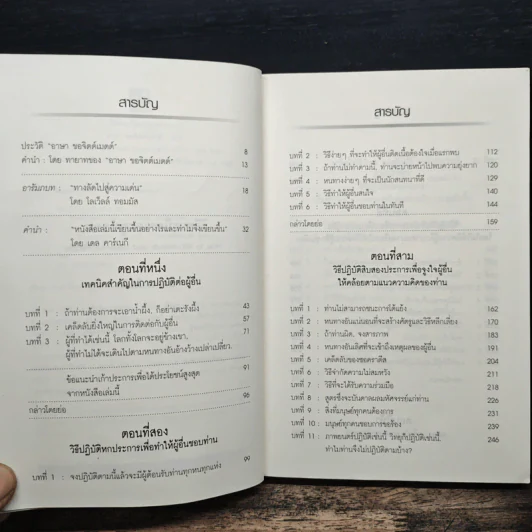 สารบัญ
ประวัติ "อาษา ขอจิตต์เมตต์" 8
คำนำ : โดย ทายาทของ "อาษา ขอจิตต์เมตต์" 13
อารัมภบท : "ทางลัดไปสู่ความเด่น" 18
โดย โลเวลล์ ทอมมัส
คำนำ : "หนังสือเล่มนี้เขียนขึ้นอย่างไรและทำไมจึงเขียนขึ้น" 32
โดย เดล คาร์เนกี
ตอนที่หนึ่ง
เทคนิคสำคัญในการปฏิบัติต่อผู้อื่น
บทที่ 1 : ถ้าท่านต้องการจะเอาน้ำผึ้ง, ก็อย่าเตะรังผึ้ง 43
บทที่ 2 : เคล็ดลับยิ่งใหญ่ในการติดต่อกับผู้อื่น 57
บทที่ 3 : ผู้ที่ทำได้เช่นนี้ โลกทั้งโลกจะอยู่ข้างเขา, 71
ผู้ที่ทำไม่ได้จะเดินไปตามหนทางอันอ้างว้างเปล่าเปลี่ยว.
ข้อแนะนำเก้าประการเพื่อได้ประโยชน์สูงสุด 91
จากหนังสือเล่มนี้
กล่าวโดยย่อ 98
ตอนที่สอง
วิธีปฏิบัติหกประการเพื่อทำให้ผู้อื่นชอบท่าน
บทที่ 1 : จงปฏิบัติตามนี้แล้วจะมีผู้ต้อนรับท่านทุกหนทุกแห่ง 99
สารบัญ
บทที่ 2 : วิธีง่ายๆ ที่จะทำให้ผู้อื่นติดเนื้อต้องใจเมื่อแรกพบ 112
บทที่ 3 : ถ้าท่านไม่ทำตามนี้, ท่านจะบ่ายหน้าไปพบความยุ่งยาก 120
บทที่ 4 : หนทางง่ายๆ ที่จะเป็นนักสนทนาที่ดี 129
บทที่ 5 : วิธีทำให้ผู้อื่นสนใจ 140
บทที่ 6 : วิธีทำให้ผู้อื่นชอบท่านในทันที 144
กล่าวโดยย่อ 159
ตอนที่สาม
วิธีปฏิบัติสิบสองประการเพื่อจูงใจผู้อื่น
ให้คล้อยตามแนวความคิดของท่าน
บทที่ 1 : ท่านไม่สามารถชนะการโต้แย้ง 162
บทที่ 2 : หนทางอันแน่นอนที่จะสร้างศัตรูและวิธีหลีกเลี่ยง 170
บทที่ 3 : ถ้าท่านผิด, จงสารภาพ 183
บทที่ 4 : หนทางอันเลิศที่จะเข้าถึงเหตุผลของผู้อื่น 191
บทที่ 5 : เคล็ดลับของซอคราตีส 204
บทที่ 6 : วิธีจำกัดความไม่สมหวัง 211
บทที่ 7 : วิธีที่จะได้รับความร่วมมือ 218
บทที่ 8 : สูตรซึ่งจะบันดาลผลมหัศจรรย์แก่ท่าน 226
บทที่ 9 : สิ่งที่มนุษย์ทุกคนต้องการ 231
บทที่ 10 : มนุษย์ทุกคนชอบการขอร้อง 239
บทที่ 11 : ภาพยนตร์ปฏิบัติเช่นนี้ วิทยุก็ปฏิบัติเช่นนี้, 246
ทำไมท่านจึงไม่ปฏิบัติตามบ้าง?